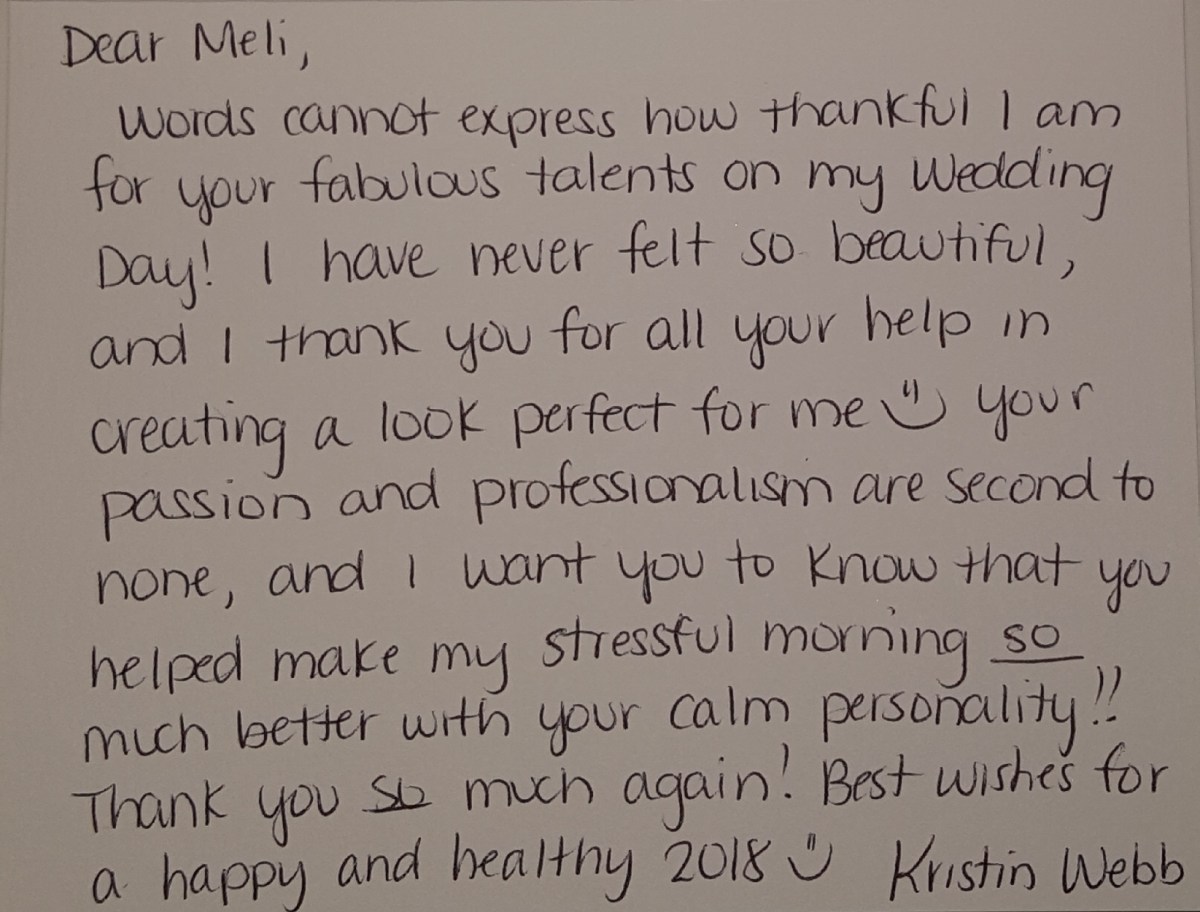 Dear Meli,
Words cannot express how thankful I am
for your fabulous talents on my Wedding
Day! I have never felt so beautiful,
and I thank you for all your help in
creating a look perfect for me :) your
passion and professionalism are second to
none, and I want you to know that you
helped make my stressful morning so
much better with your calm personality!!
Thank you so much again! Best wishes for
a happy and healthy 2018 :) Kristin Webb